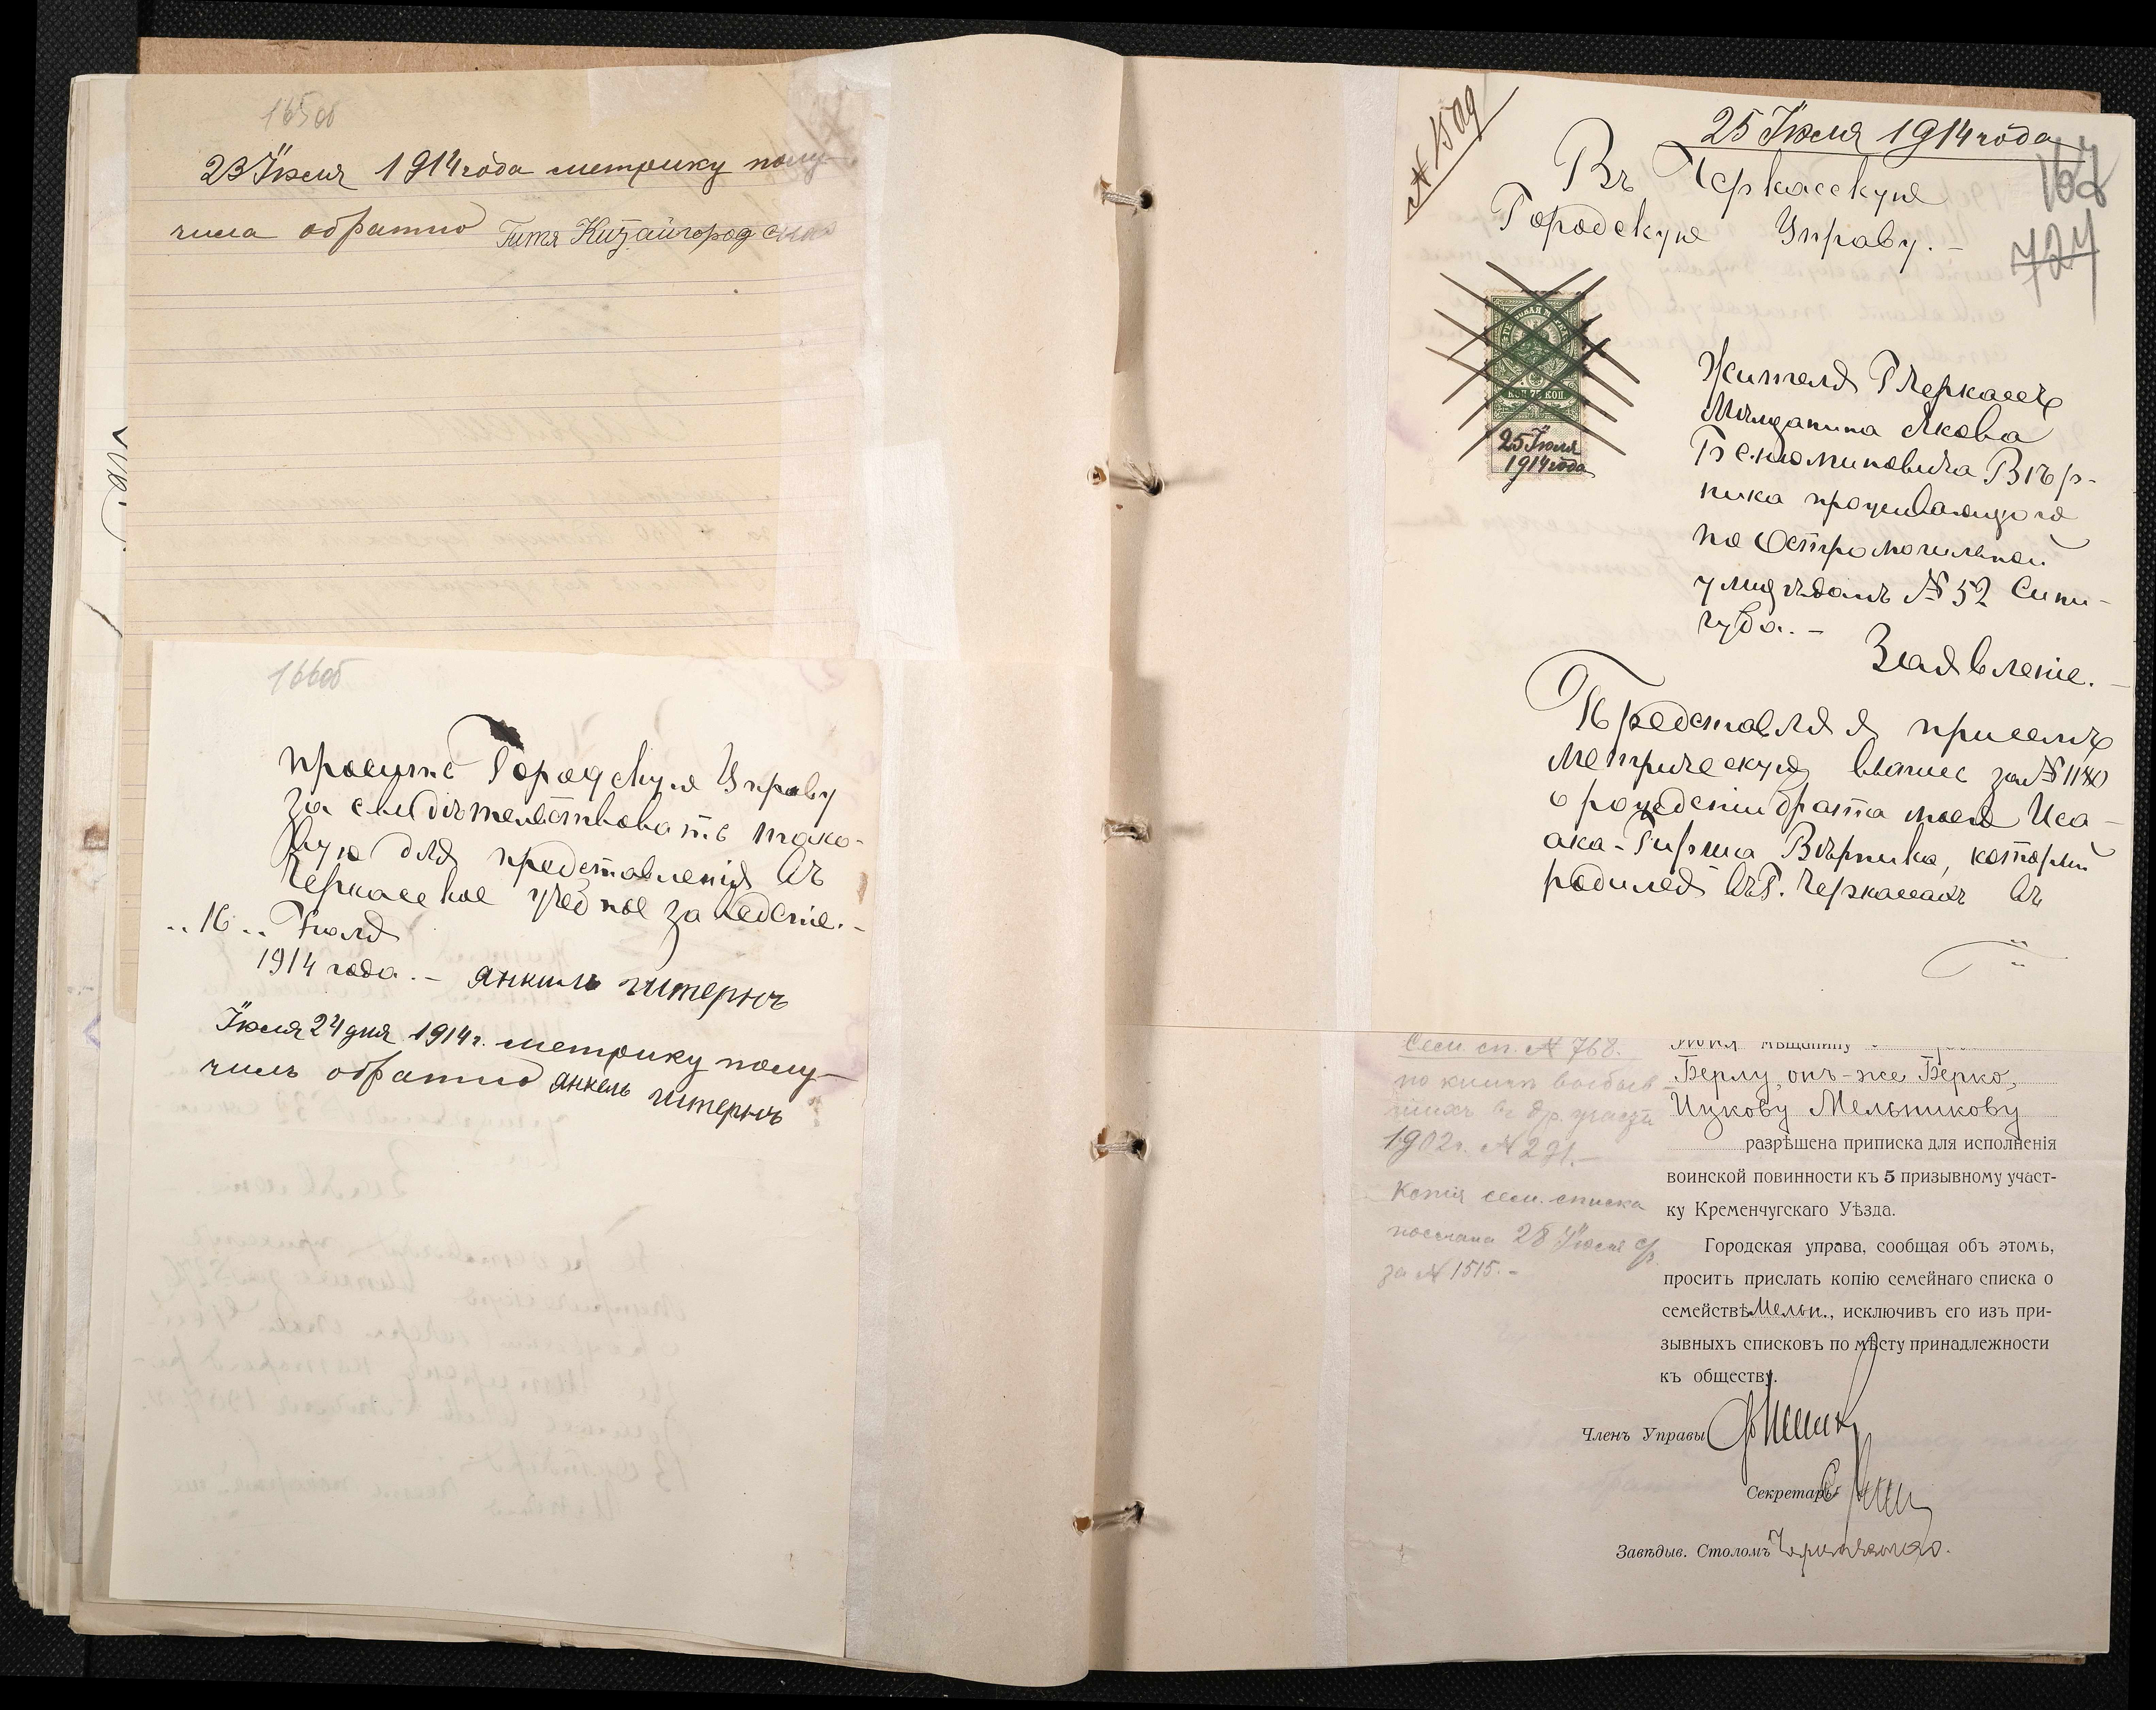 165об
23 Іюля 1914 года метрику полу-
чила обратно Гитя Китайгородская
166об
просить Городскую Управу
засвидѣтельствовать тако-
вую для представленія въ
Черкаское учебное заведеніе.-
"16" Іюля
1914 года.- Анкиль Читернъ
Іюля 24 дня 1914 г. метрику полу-
чилъ обратно Анкель Читернъ
№ 1509
25 Іюля 1914 года
167
724
Въ Черкасскую
Городскую Управу.-
КОП. 75 КОП.
25 Іюля
1914 года
Жителя Г Черкассъ
Мѣщанина Якова
Бенюминовича Вѣр-
ника проживающаго
по Остромогильной
улицѣ домъ № 52 Сини-
губа.-
Заявленіе.-
Представляя присемъ
метрическую выпись за № 1180
о рождении брата моего Иса-
ака-Гирша Вѣрника, который
родился въ Г. Черкассахъ въ
Сем. сп. № 768.
по книгѣ выбыв-
шихъ въ др. участки
1902 г. № 271.-
Копія сем. списка
послана 28 Іюля с/г.
за № 1515.-
мѣщанину
Берлу, онъ-же Берко,
Ицкову Мельникову
разрѣшена приписка для исполненія
воинской повинности къ 5 призывному участ-
ку Кременчугскаго Уѣзда.
Городская управа, сообщая объ этомъ,
проситъ прислать копію семейнаго списка о
семействѣ Мельн., исключивъ его изъ при-
зывныхъ списковъ по мѣсту принадлежности
къ обществу.
Членъ Управы
Секретарь
Завѣдыв. Столомъ